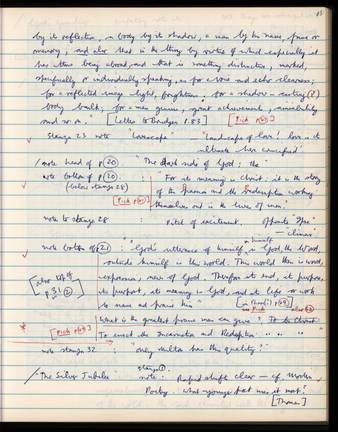 by its reflection, a body by its shadow, a man by his name, fame or
memory, and also that in the thing by virtue of which especially it
has this being abroad, and that is something distinctive, marked,
specifically or individually speaking, as for a voice and echo clearness;
for a reflected image light, brightness; for a shadow-casting (?)
body bulk; for a man genius, great achievements, amiability
and so on." [Letter to Bridges p.83] [Pick p(
Stanza 23 note "Lovescape" "Landscape of Love! Love in its
ultimate: Love crucified"
note head of p(20) "The dark side of God; the"
note bottom of p(20) : "For its meaning is Christ: it is the story
(below stanza 28) of the passion and the redemption working
[Pick p(
themselves out in the lives of men."
note to stanza 28 : Pitch of excitement. opposite "Ipse"
— climax
note bottom of p21 : "God's utterance of himself in himself is God the Word,
outside himself in this world. This world then is word,
expression, news of God. Therefore its end, its purpose,
its purport, its meaning is God, and its life or work
to name and praise him"
"What is the greatest praise man can give"? To be Christ
[Pick p(69)] To enact the Incarnation and Redemption " " "
note stanza 32 : "only sultan has this quality?"
"The Silver Jubilee" stanza
note : Rapid shift clear — cf
Poetry. what younger poet was it not?
[Thomas]